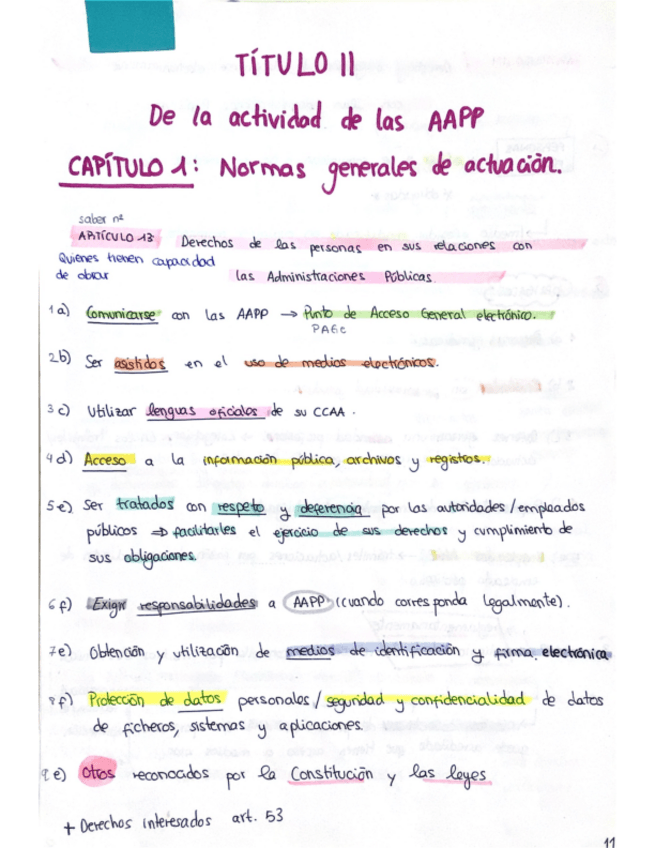 TÍTULO II
De la actividad de las AAPP
CAPÍTULO 1: Normas generales de actuación.
saber nº
ARTÍCULO 13 Derechos de las personas en sus relaciones con
Quienes tienen capacidad
de obrar las Administraciones Públicas.
1 a) Comunicarse con las AAPP → Punto de Acceso General electrónico.
PAGe
2 b) Ser asistidos en el uso de medios electrónicos.
3 c) Utilizar lenguas oficiales de su CCAA.
4 d) Acceso a la información pública, archivos y registros.
5 e) Ser tratados con respeto y deferencia por las autoridades/empleados
públicos ⇒ facilitarles el ejercicio de sus derechos y cumplimiento de
sus obligaciones.
6 f) Exigir responsabilidades a AAPP (cuando corresponda legalmente).
7 e) Obtención y utilización de medios de identificación y firma electrónica
8 f) Protección de datos personales/seguridad y confidencialidad de datos
de ficheros, sistemas y aplicaciones.
9 e) Otros reconocidos por la Constitución y las leyes
+ Derechos interesados art. 53
11